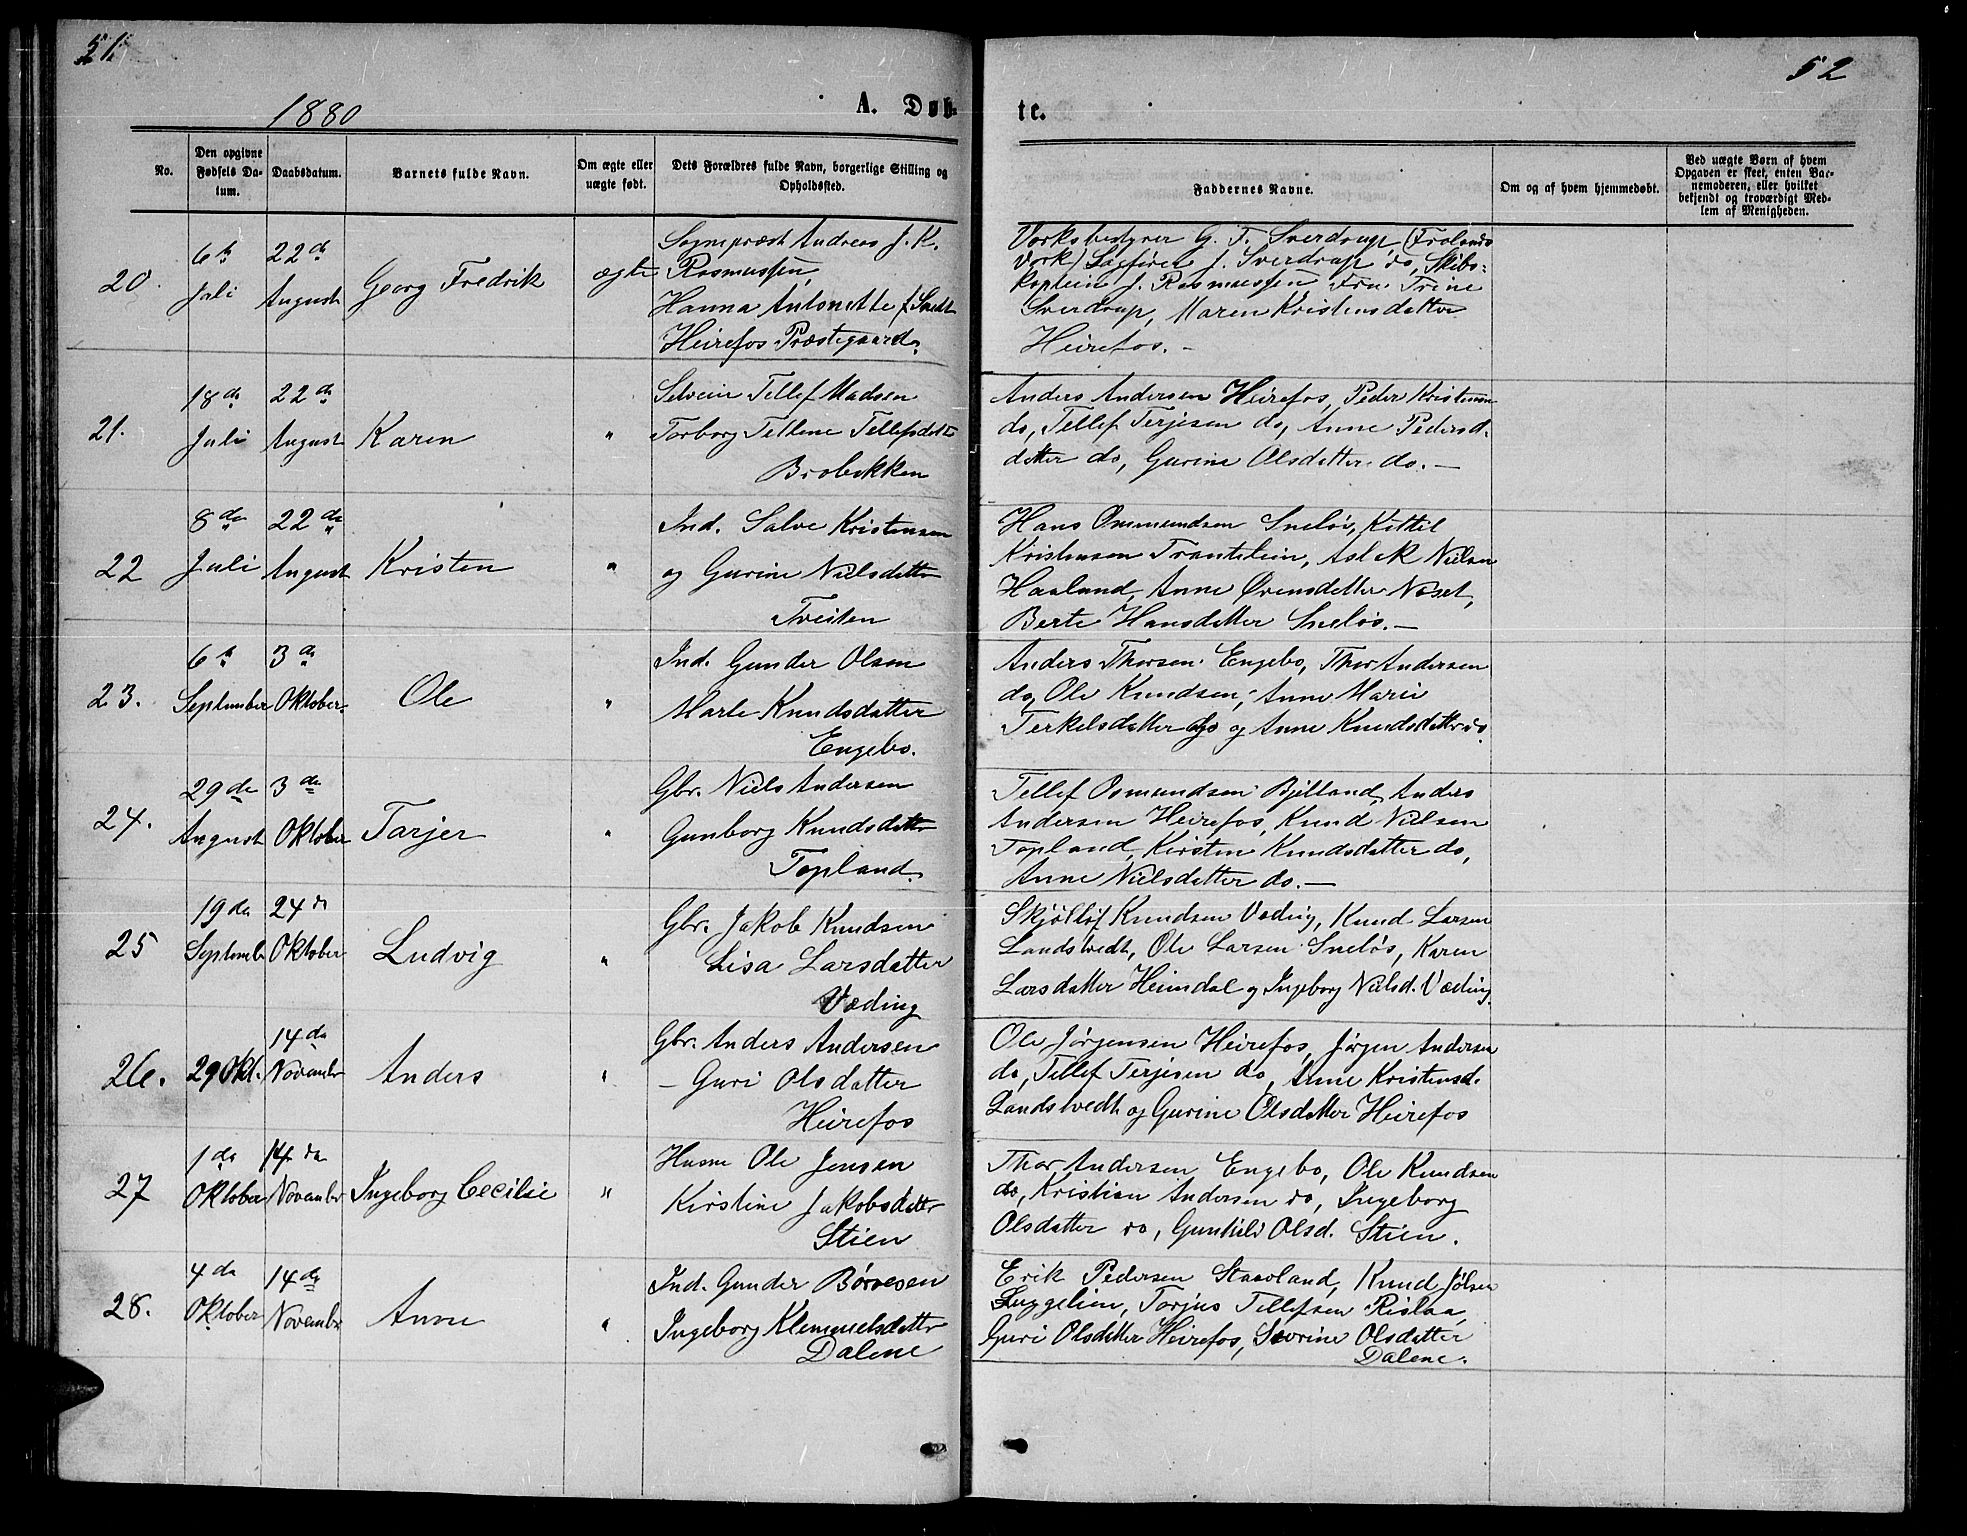 51.
52
1880
A. Døb-
te.
No.
Den opgivne Fødsels Da-tum.
Daabsdatum.
Barnets fulde Navn.
Om ægte eller uægte født.
Dets Forældres fulde Navn, borgerlige Stilling og Opholdssted.
Faddernes Navne.
Om og af hvem hjemmedøbt.
Ved uægte Børn af hvem Opgaven er skeet, enten Bar-nemoderen, eller hvilket bekjendt og troværdigt Med-lem af Menigheden.
20.
6te Juli
22de August
Georg Fredrik
ægte
Sognepræst Andreas J. K.
Rasmussen,
Hanna Antonette f.
Heirefos Præstegaard.
Værksbestyrer G. F. Sverdrup (Frolands
Værk) Sagfører J. Sverdrup do, Skibs-
kaptein J. Rasmussen Fru Trine
Sverdrup, Maren Kristensdatter
Heirefos. -
21.
18de Juli
22de August
Karen
"
Selveier Tellef Madsen
Torborg Tellene Tellefsdatter
Brobekken
Anders Andersen Heirefos, Peder Kristensen
do, Tellef Terjesen do, Anne Pedersd.
datter do, Gurine Olsdatter do. -
22
8de Juli
22de August
Kristen
"
Ind. Salve Kristensen
og Gurine Nielsdatter
Treiten
Hans Ommundsen Sneløs, Kittil
Kristensen Trantelein, Aslak Nielsen
Haaland, Anne Ørensdatter Neset,
Berte Hansdatter Sneløs. -
23.
6te September
3de Oktober.
Ole
"
Ind. Gunder Olsen
Marte Knudsdatter
Engebo.
Anders Thorsen Engebo, Thor Andersen
do, Ole Knudsen, Anne Marie
Terkelsdatter do og Anne Knudsdatter do.
24.
29de August
3de Oktober
Tarjer
"
Gbr. Niels Andersen
Gunborg Knudsdatter
Topland.
Tellef Osmundsen Bjelland, Anders
Andersen Heirefos, Knud Nielsen
Topland, Kirsten Knudsdatter do,
Anne Nielsdatter do. -
25
19de September
24de Oktober
Ludvig
"
Gbr. Jakob Knudsen
Lisa Larsdatter
Væding
Knudsen Væding, Knud Larsen
Landstvedt, Ole Larsen Sneløs, Karen
Larsdatter Heimdal og Ingeborg Nielsd. Væding.
26.
29 Okt.
14de November
Anders
"
Gbr. Anders Andersen
- Guri Olsdatter
Heirefos
Ole Jørgensen Heirefos, Jørgen Andersen
do, Tellef Terjesen do, Anne Kristensd.
Landstvedt og Gurine Olsdatter Heirefos
27
1de Oktober
14de November
Ingeborg Cecilie
"
Husm Ole Jensen
Kirstine Jakobsdatter
Stien
Thor Andersen Engebo, Ole Knudsen
do, Kristian Andersen do, Ingeborg
Olsdatter do, Gunhild Olsd. Stien.
28.
4de Oktober
14de November
Anne
"
Ind. Gunder Børresen
Ingeborg Klemmetsdatter
Dalene
Erik Pedersen Staavland, Knud Jølsen
Luggelien, Torjus Tellefsen Rislaa,
Guri Olsdatter Heirefos, Severine Olsdatter
Dalene.